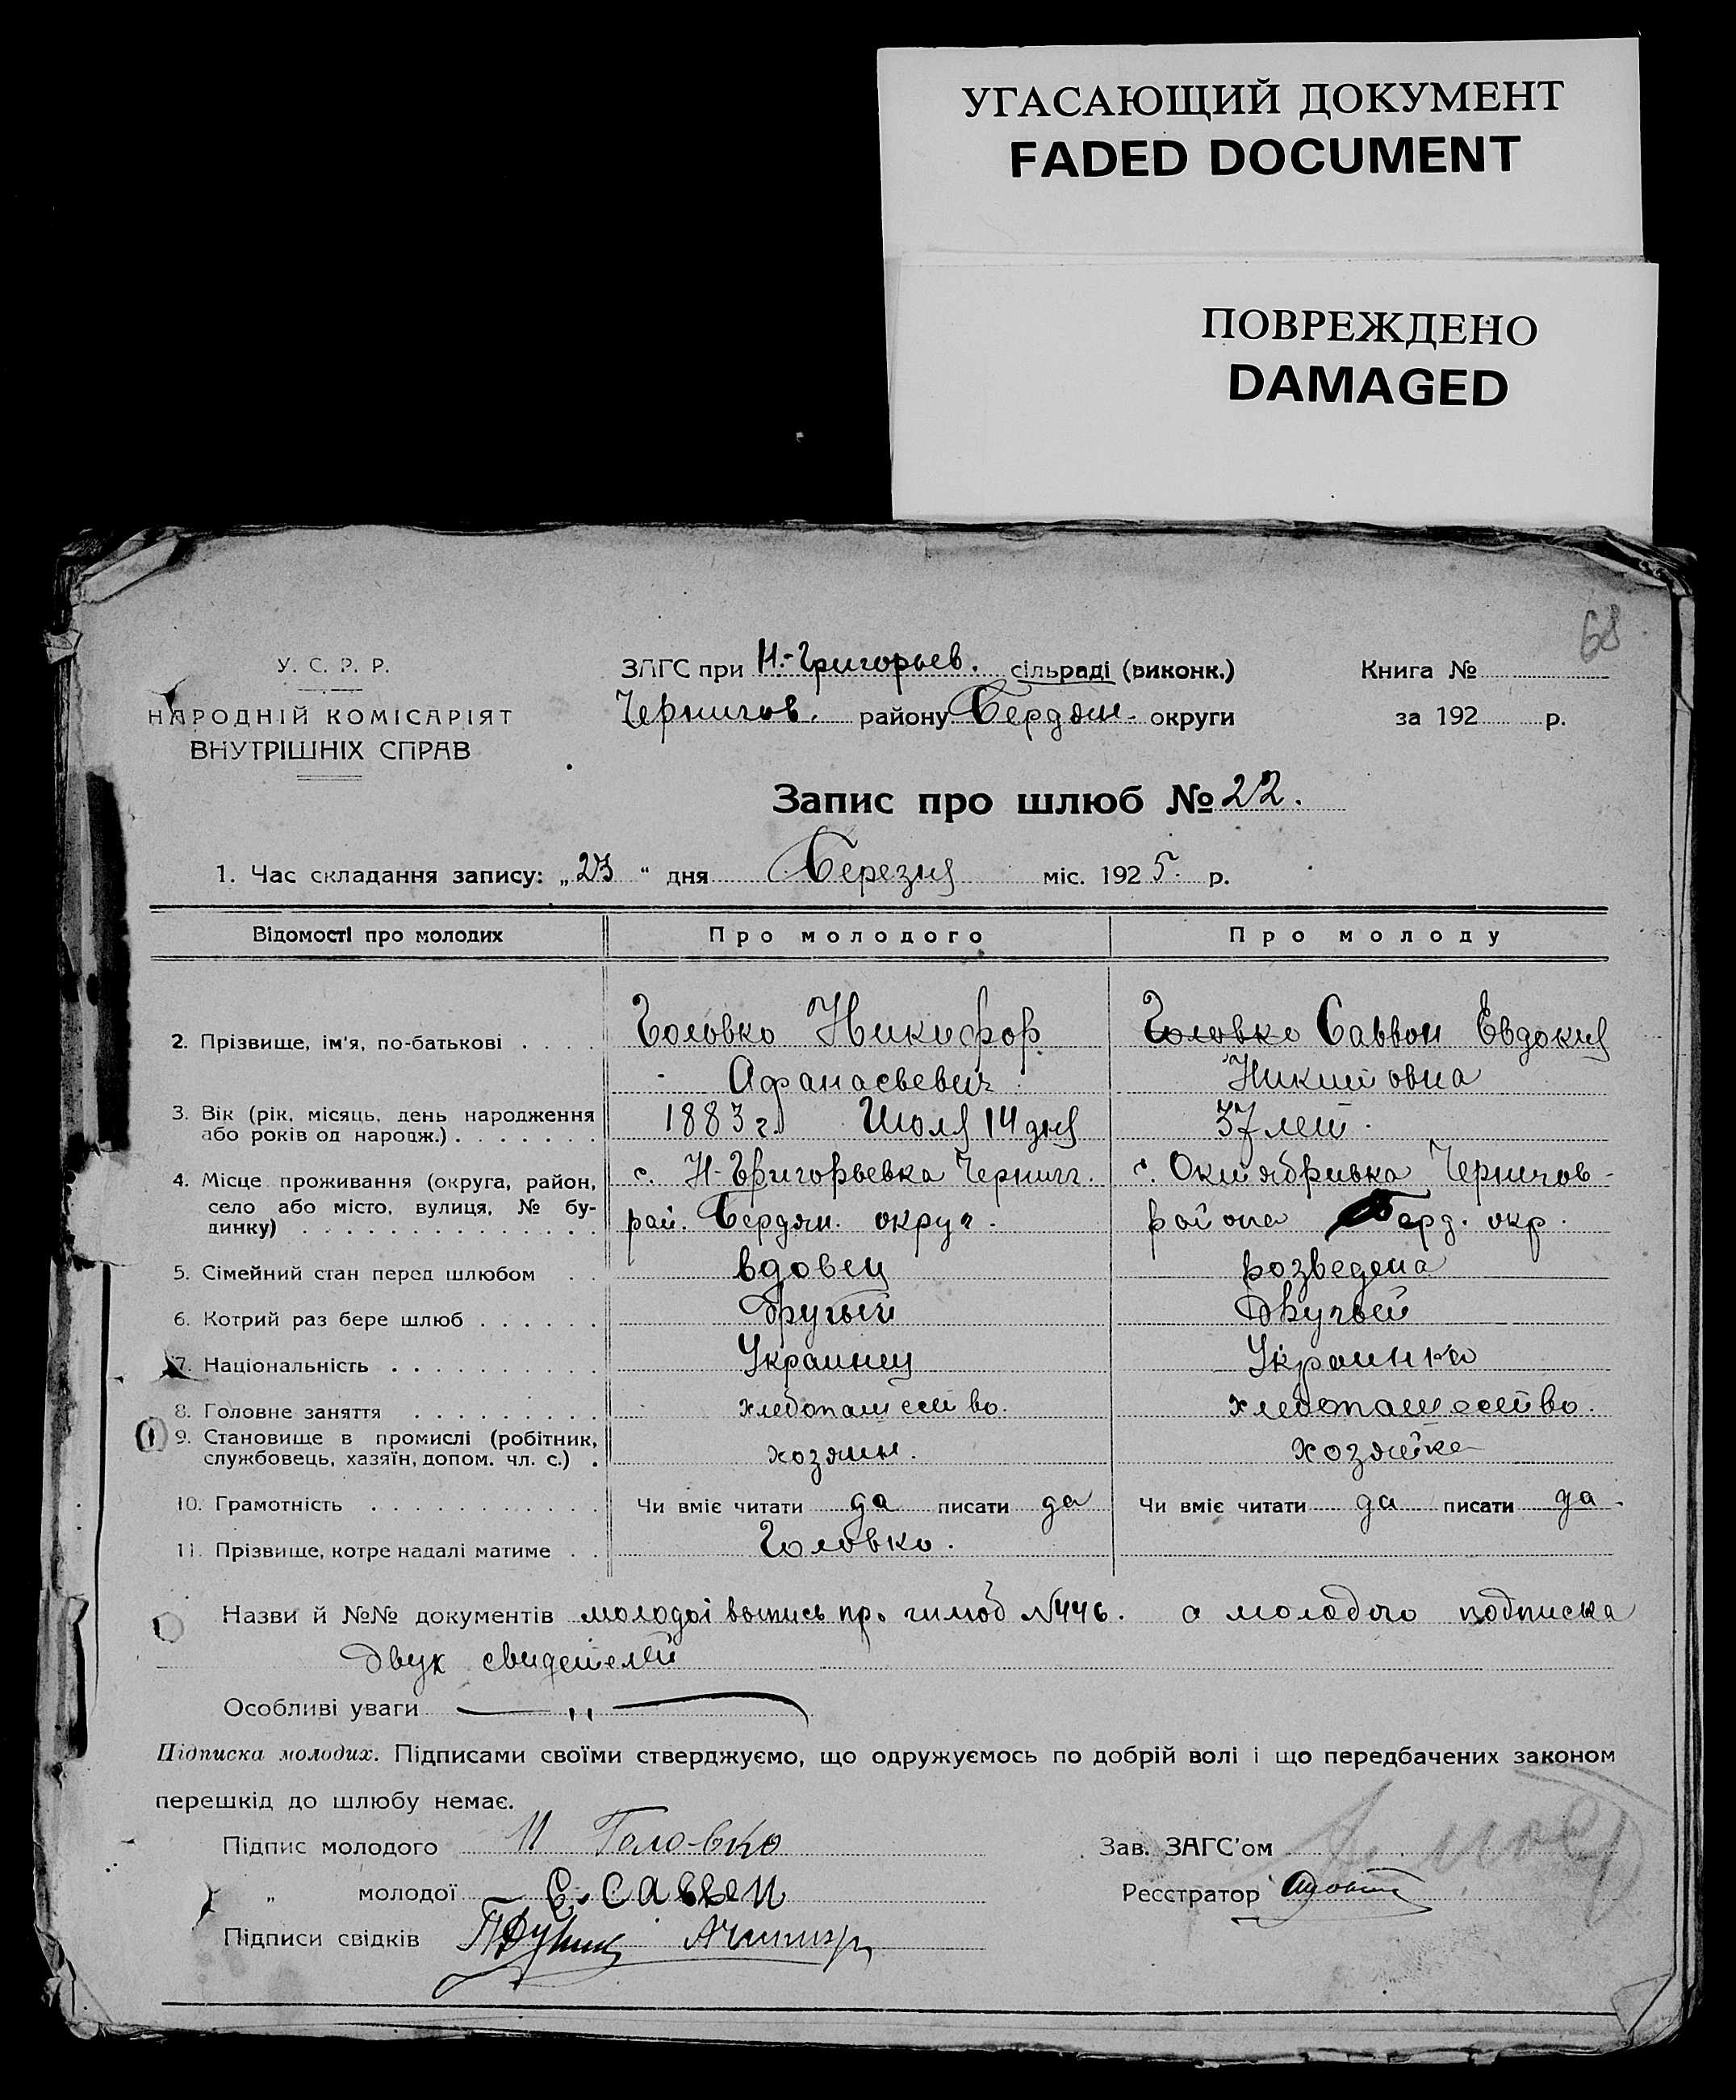 УГАСАЮЩИЙ ДОКУМЕНТ
FADED DOCUMENT
ПОВРЕЖДЕНО
DAMAGED
68
У. С. Р. Р.
НАРОДНІЙ КОМІСАРІЯТ
ВНУТРІШНІХ СПРАВ
ЗАГС при Н.-Григорьев. сільраді (виконк.)
Чернигов. району Бердян. округи
Книга №
за 192 р.
Запис про шлюб № 22.
1. Час складання запису: „23 “ дня Березня міс. 1925 р.
Відомості про молодих Про молодого Про молоду
2. Прізвище, ім'я, по-батькові Головко Никифор Головко Саввон Евдокия
Афанасьевич Никитовна
3. Вік (рік, місяць, день народження 1883 г. Июля 14 дня 37 лет.
або років од народж.)
4. Місце проживання (округа, район, с. Н-Григорьевка Черниг. с. Октябривка Чернигов-
село або місто, вулиця, № бу- рай. Бердян. округ. района Берд. окр.
динку)
5. Сімейний стан перед шлюбом вдовец розведена
6. Котрий раз бере шлюб Другый Другый
7. Національність Украинец Украинка
8. Головне заняття хлебопашество. хлебопашество.
9. Становище в промислі (робітник, хозяин. хозяйка
службовець, хазяїн, допом. чл. с.)
10. Грамотність Чи вміє читати да писати да Чи вміє читати да писати да.
11. Прізвище, котре надалі матиме Головко.
Назви й №№ документів молодої выпись про шлюб №446. а молодого подписка
двух свидетелей
Особливі уваги — „ —
Підписка молодих. Підписами своїми стверджуємо, що одружуємось по добрій волі і що передбачених законом
перешкід до шлюбу немає.
Підпис молодого Н Головко
Зав. ЗАГС'ом
„ молодої Е. Саввен
Реєстратор
Підписи свідків